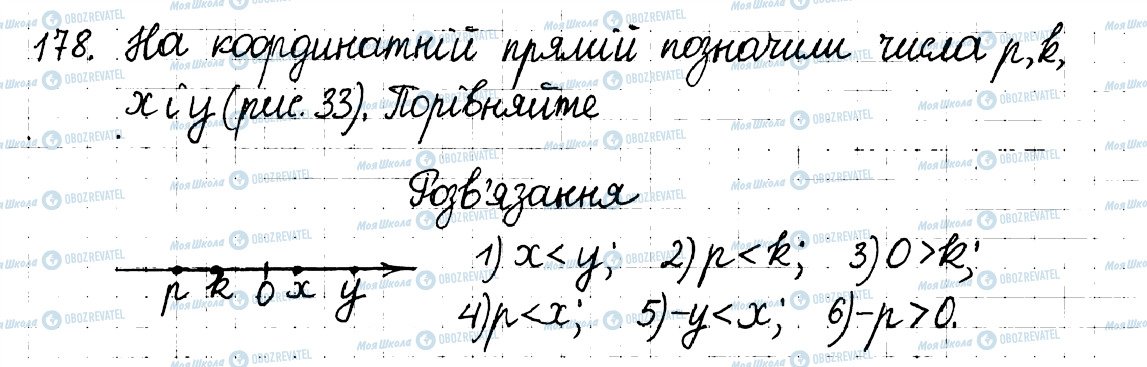 178. На координатній прямій позначили числа p, k,
x і y (рис. 33). Порівняйте
Розв'язання
1) x < y; 2) p < k; 3) 0 > k;
p k 0 x y
4) p < x; 5) -y < x; 6) -p > 0.
Моя Школа OBOZREVATEL